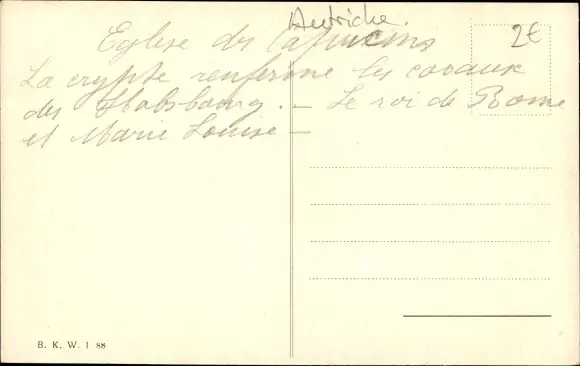 Autriche.
2€
Eglise des Capucins
La crypte renferme les caveaux
des Habsbourg. — Le roi de Rome
et Marie Louise —
B. K. W. I 88